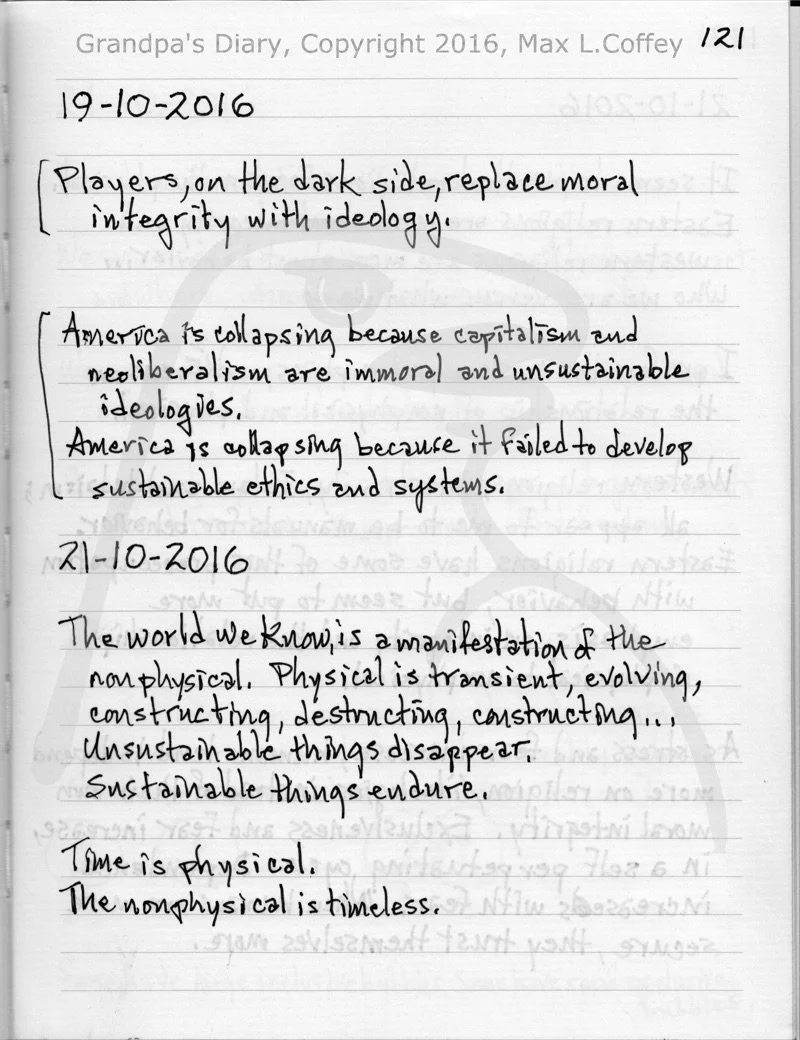 Grandpa's Diary, Copyright 2016, Max L.Coffey 121
19-10-2016
Players, on the dark side, replace moral
integrity with ideology.
America is collapsing because capitalism and
neoliberalism are immoral and unsustainable
ideologies.
America is collapsing because it failed to develop
sustainable ethics and systems.
21-10-2016
The world we know, is a manifestation of the
nonphysical. Physical is transient, evolving,
constructing, destructing, constructing...
Unsustainable things disappear.
Sustainable things endure.
Time is physical.
The nonphysical is timeless.